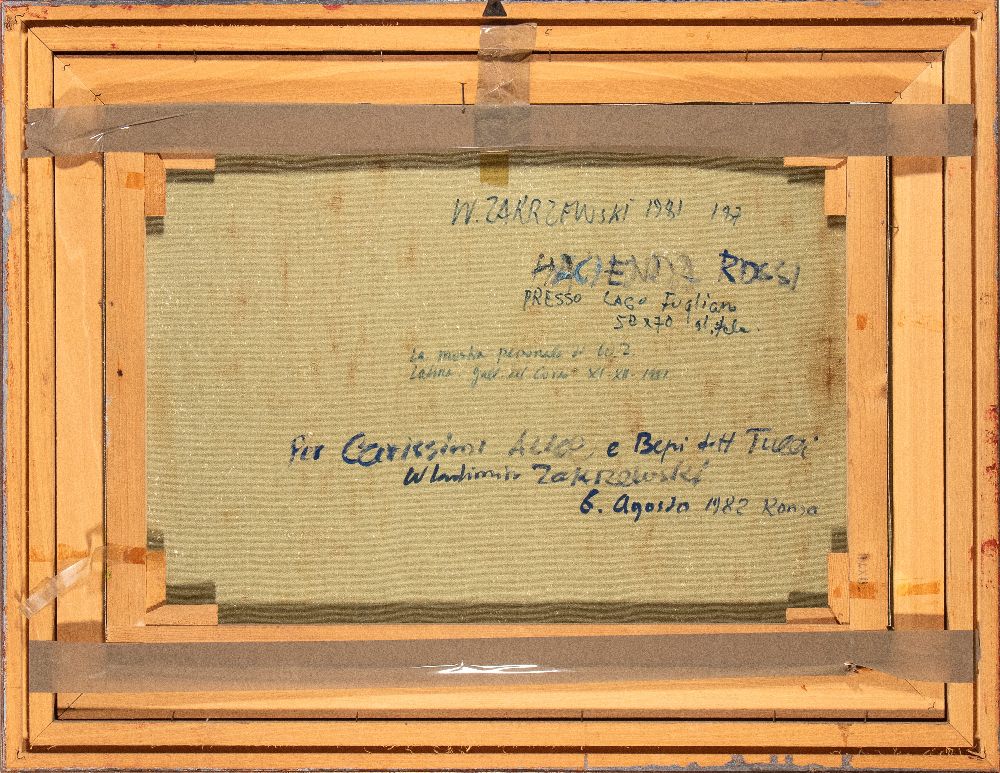 W. ZAKRZEWSKI 1981 197
HACIENDA ROSSI
PRESSO LAGO Fogliano
50x70
La mostra personale di W.Z.
Latina Gall. del Corso XI-XII-1981
Per Carissimi e Bepi dott Tucci
Wladimiro Zakrzewski
6. Agosto 1982 Roma